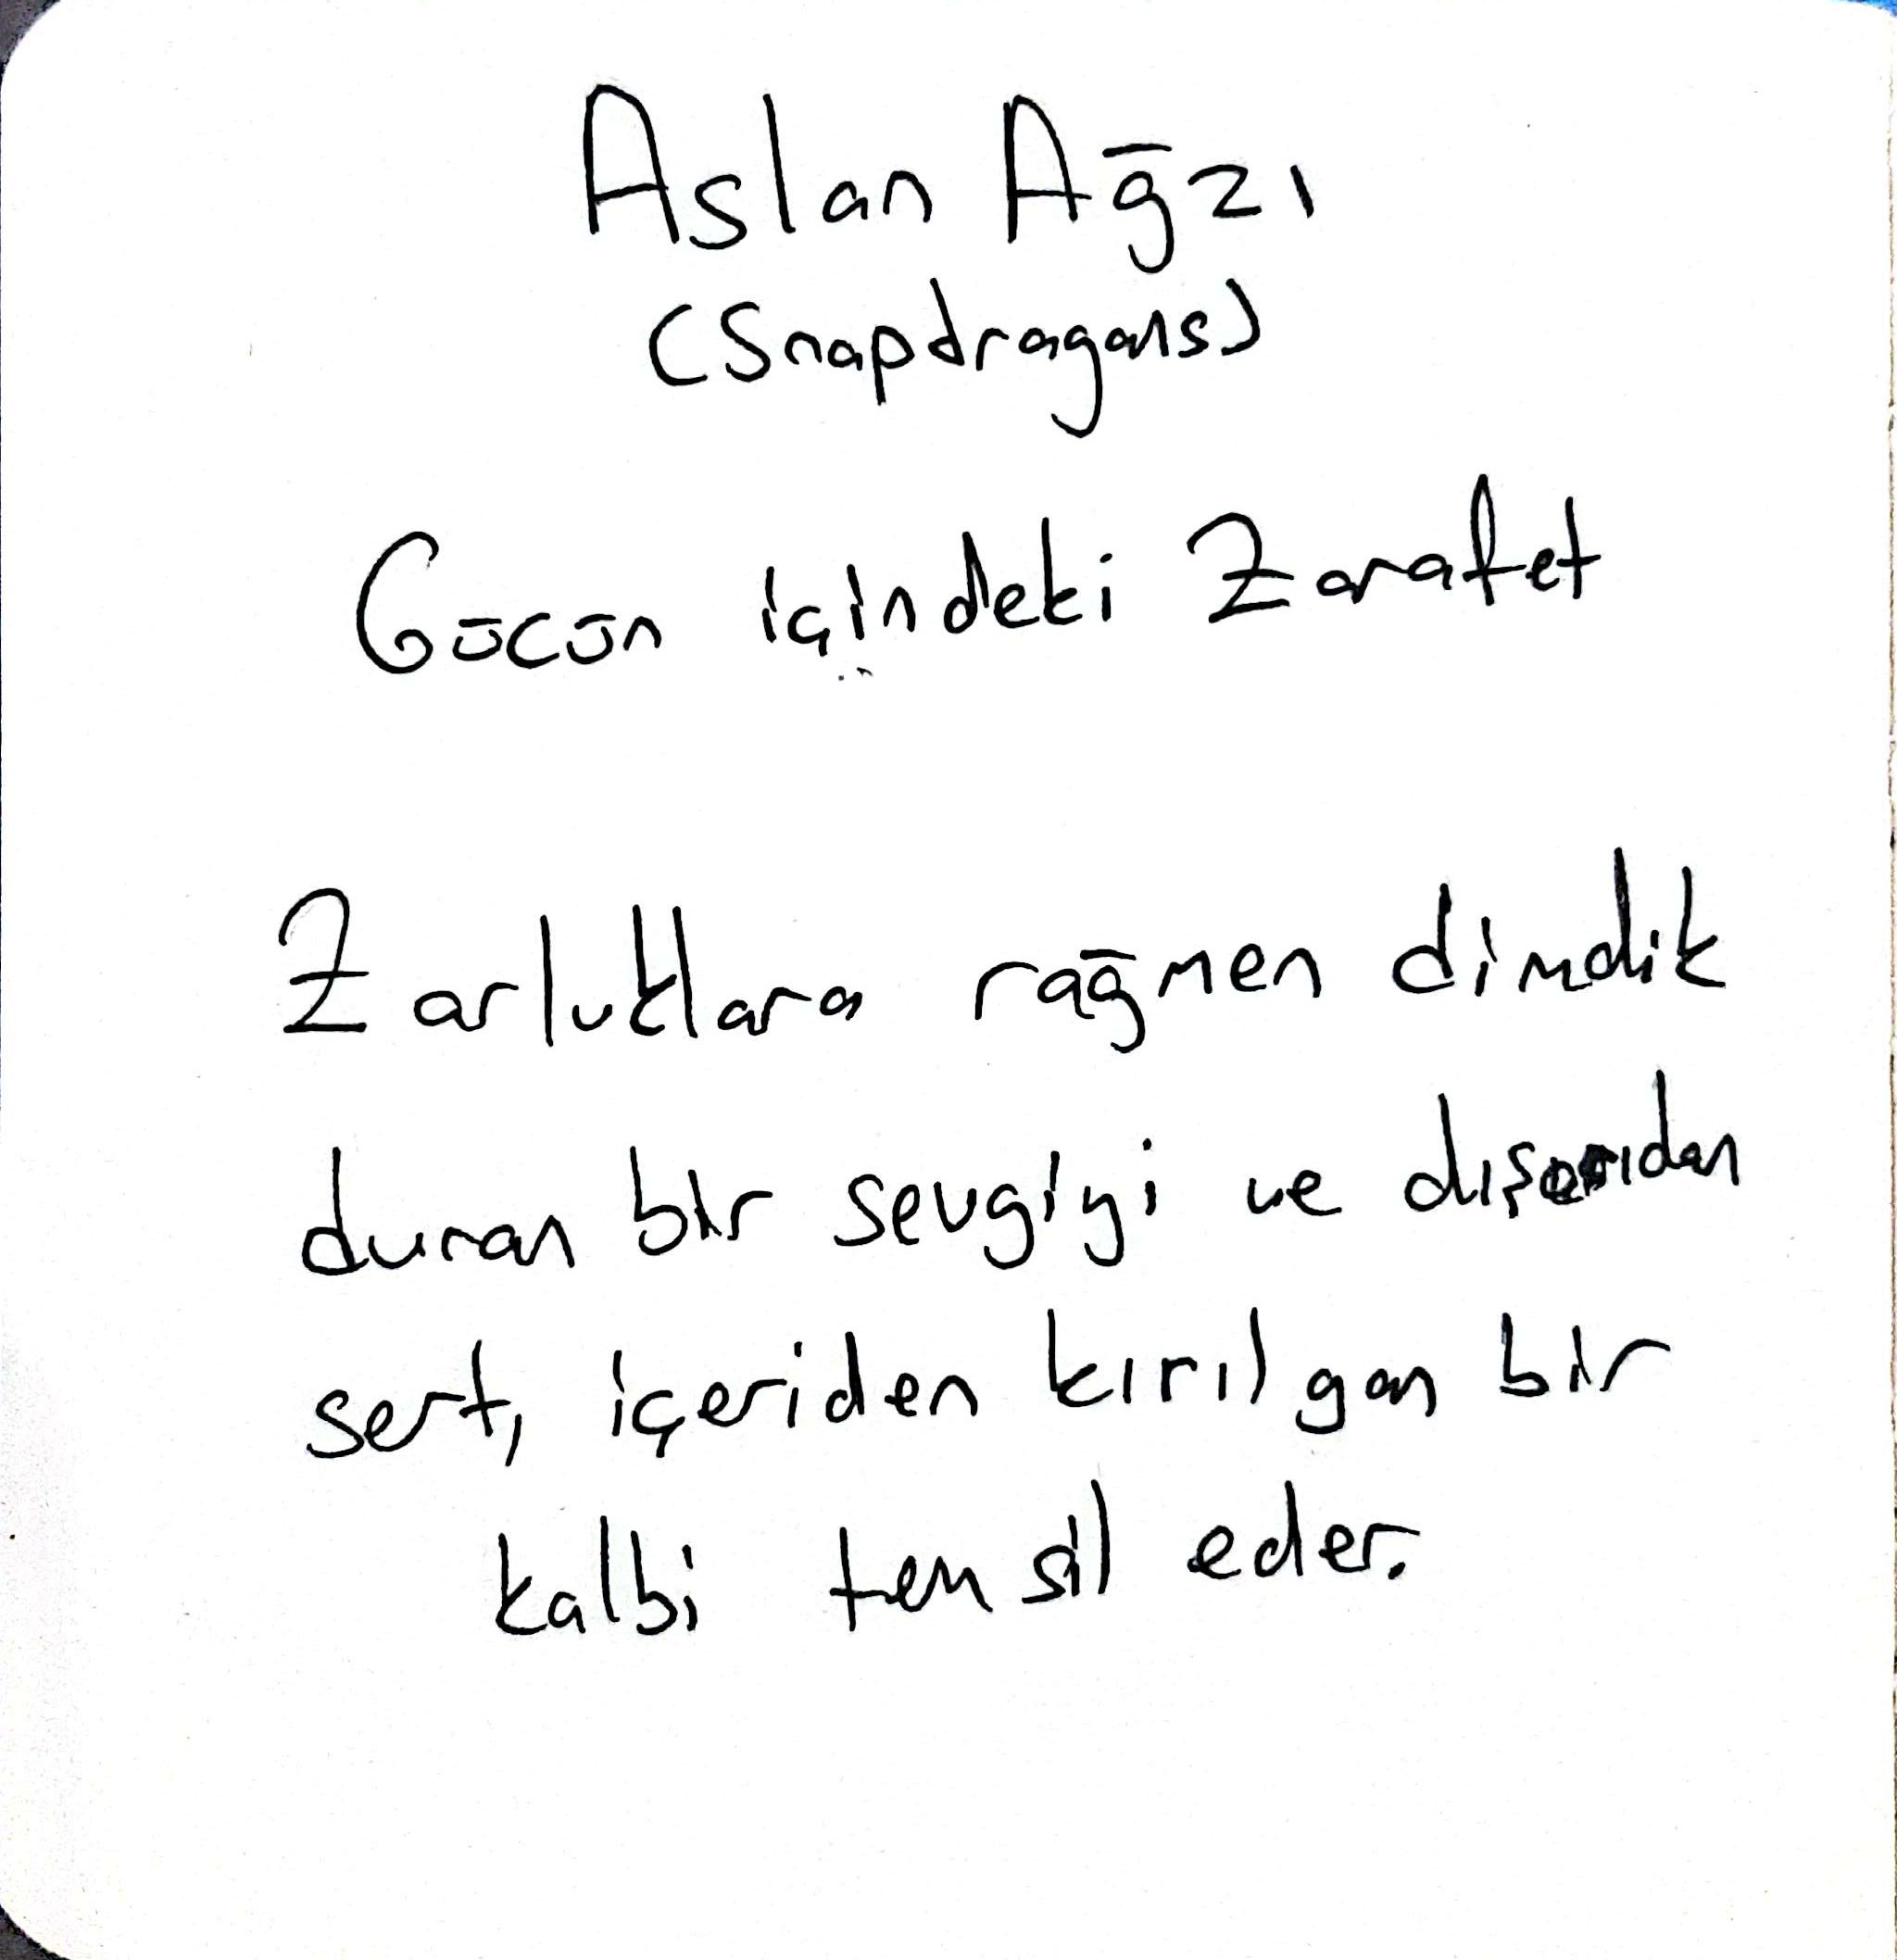 Aslan Ağzı
(Snapdragons)
Gücün içindeki Zarafet
Zorluklara rağmen dimdik
duran bir sevgiyi ve dışarıdan
sert, içeriden kırılgan bir
kalbi temsil eder.